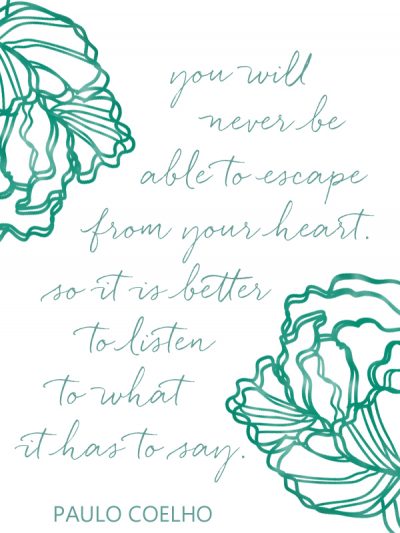 you will
never be
able to escape
from your heart.
so it is better
to listen
to what
it has to say.
PAULO COELHO